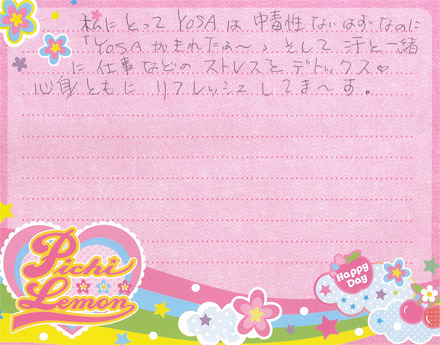 私にとってYOSAは中毒性ないはずなのに
「YOSAかまれたぁ〜」そして汗と一緒
に仕事などのストレスをデトックス♡
心身ともにリフレッシュしてま〜す。
Pichi
Lemon
Happy
Day